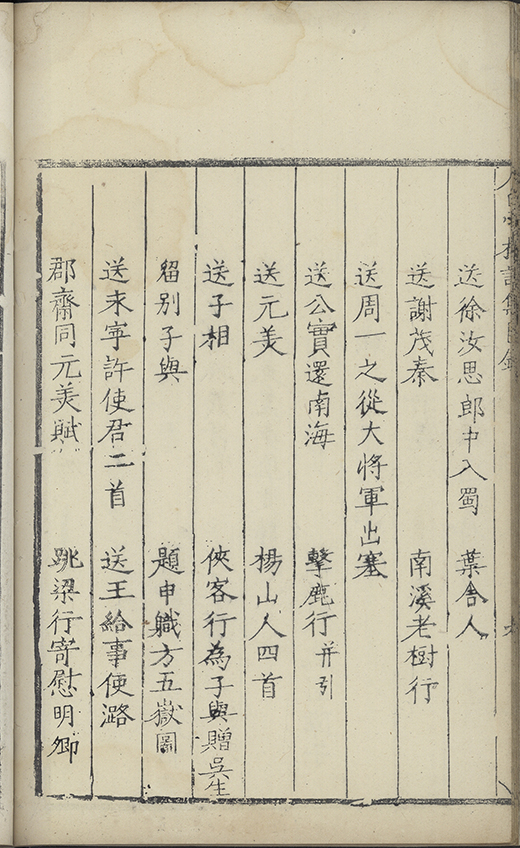 送徐汝思郎中入蜀 葉舍人
送謝茂秦 南溪老樹行
送周一之從大將軍出塞
送公實還南海 擊鹿行并引
送元美 楊山人四首
送子相 俠客行為子與贈吳生
留別子與 題申職方五嶽圖
送永寧許使君二首 送王給事使潞
郡齋同元美賦 跳梁行寄慰明卿